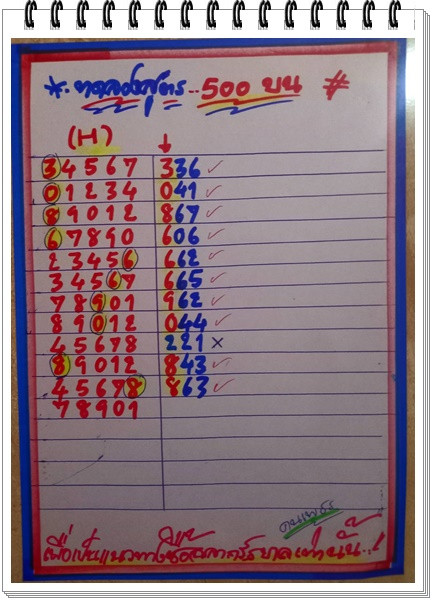 *. ทดลองสูตร.. 500 บน #
(H) ↓
34567 336 ✓
01234 041 ✓
89012 867 ✓
67890 606 ✓
23456 662 ✓
34567 665 ✓
78901 962 ✓
89012 044 ✓
45678 221 ×
89012 843 ✓
45678 863 ✓
78901
คนเพชร
เพื่อเป็นแนวทางซื้อสลากรัฐบาลเท่านั้น..!